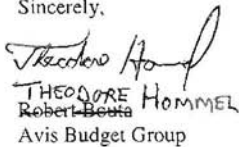 Sincerely,
Theodore Hommel
THEODORE HOMMEL
Robert Bouta
Avis Budget Group